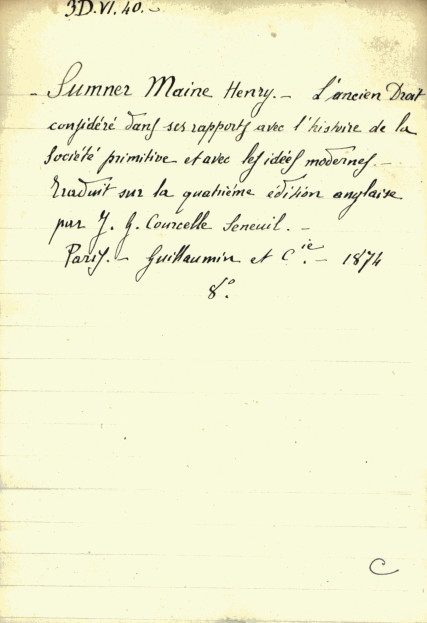 3D.VI.40.-
- Sumner Maine Henry.- L'ancien Droit
considéré dans ses rapports avec l'histoire de la
Société primitive et avec les idées modernes.-
Traduit sur la quatrième édition anglaise
par J. G. Courcelle Seneuil.-
Paris.- Guillaumin et Cie.- 1874
8°.
C